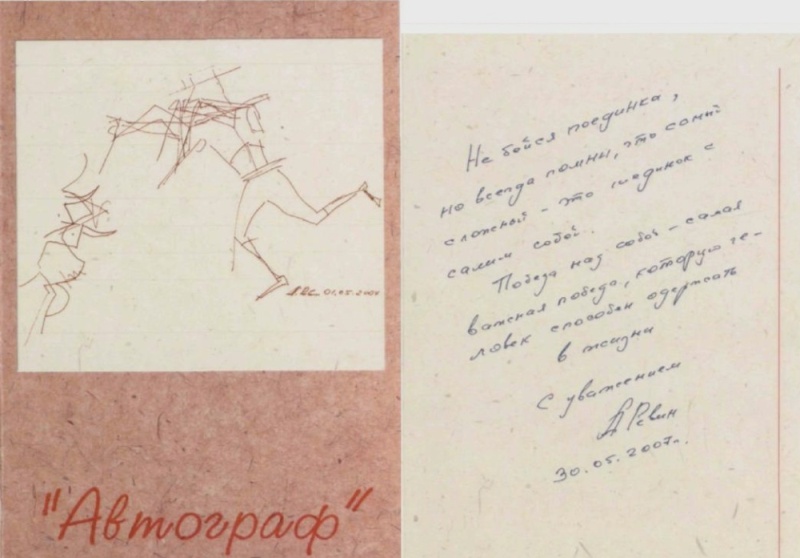 01.05.2007
"Автограф"
Не бойся поединка,
но всегда помни, что самый
сложный - это поединок с
самим собой.
Победа над собой - самая
важная победа, которую че-
ловек способен одержать
в жизни
С уважением
А Ревин
30.05.2007г.